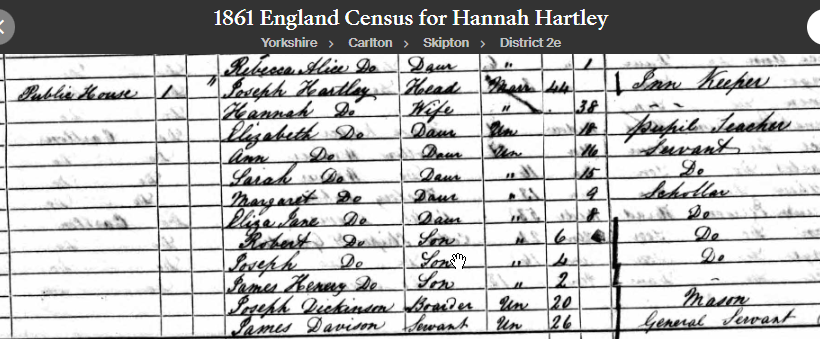 1861 England Census for Hannah Hartley
Yorkshire > Carlton > Skipton > District 2e
Rebecca Alice Do Daur " 1
Public House 1 " Joseph Hartley Head Marr 44 Inn Keeper
Hannah Do Wife " 38
Elizabeth Do Daur Un 18 Pupil Teacher
Ann Do Daur Un 16 Servant
Sarah Do Daur " 15 Do
Margaret Do Daur " 9 Schollar
Eliza Jane Do Daur " 8 Do
Robert Do Son " 6 Do
Joseph Do Son " 4 Do
James Henery Do Son " 2
Joseph Dickinson Boarder Un 20 Mason
James Davison Servant Un 26 General Servant